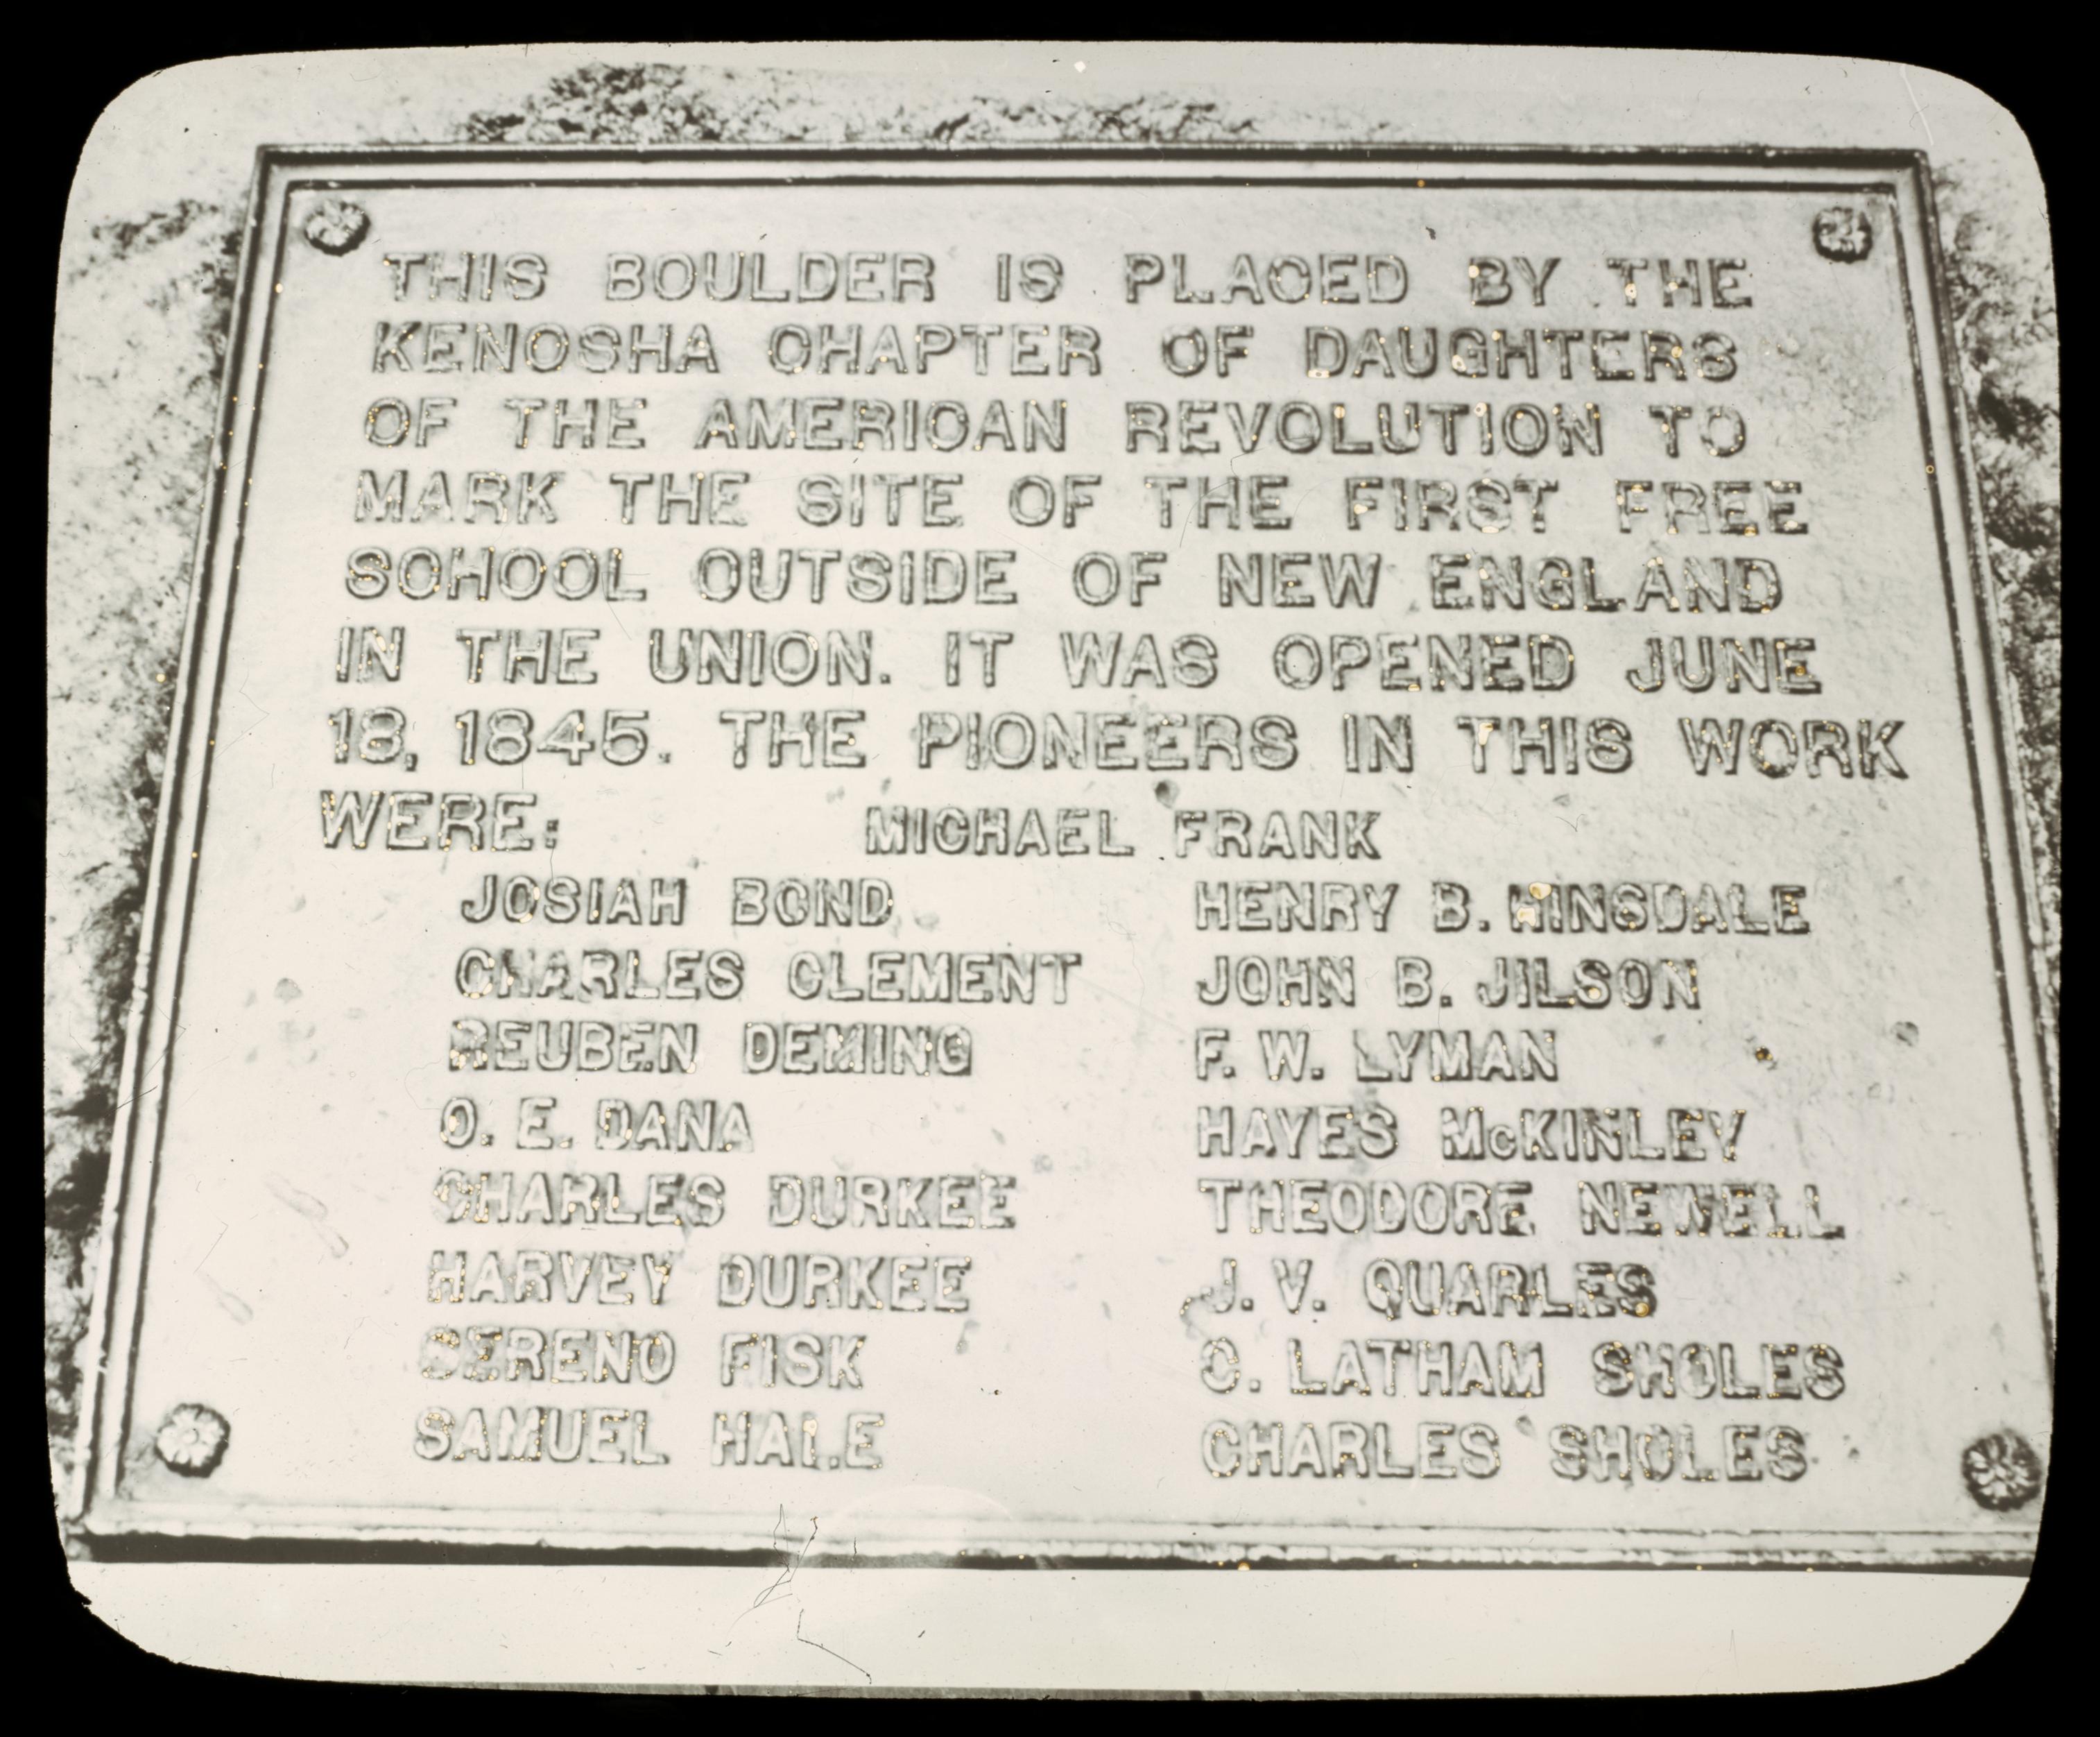 THIS BOULDER IS PLACED BY THE
KENOSHA CHAPTER OF DAUGHTERS
OF THE AMERICAN REVOLUTION TO
MARK THE SITE OF THE FIRST FREE
SCHOOL OUTSIDE OF NEW ENGLAND
IN THE UNION. IT WAS OPENED JUNE
18, 1845. THE PIONEERS IN THIS WORK
WERE: MICHAEL FRANK
JOSIAH BOND
CHARLES CLEMENT
REUBEN DEMING
O. E. DANA
CHARLES DURKEE
HARVEY DURKEE
SERENO FISK
SAMUEL HALE
HENRY B. HINSDALE
JOHN B. JILSON
F. W. LYMAN
HAYES McKINLEY
THEODORE NEWELL
J. V. QUARLES
C. LATHAM SHOLES
CHARLES SHOLES